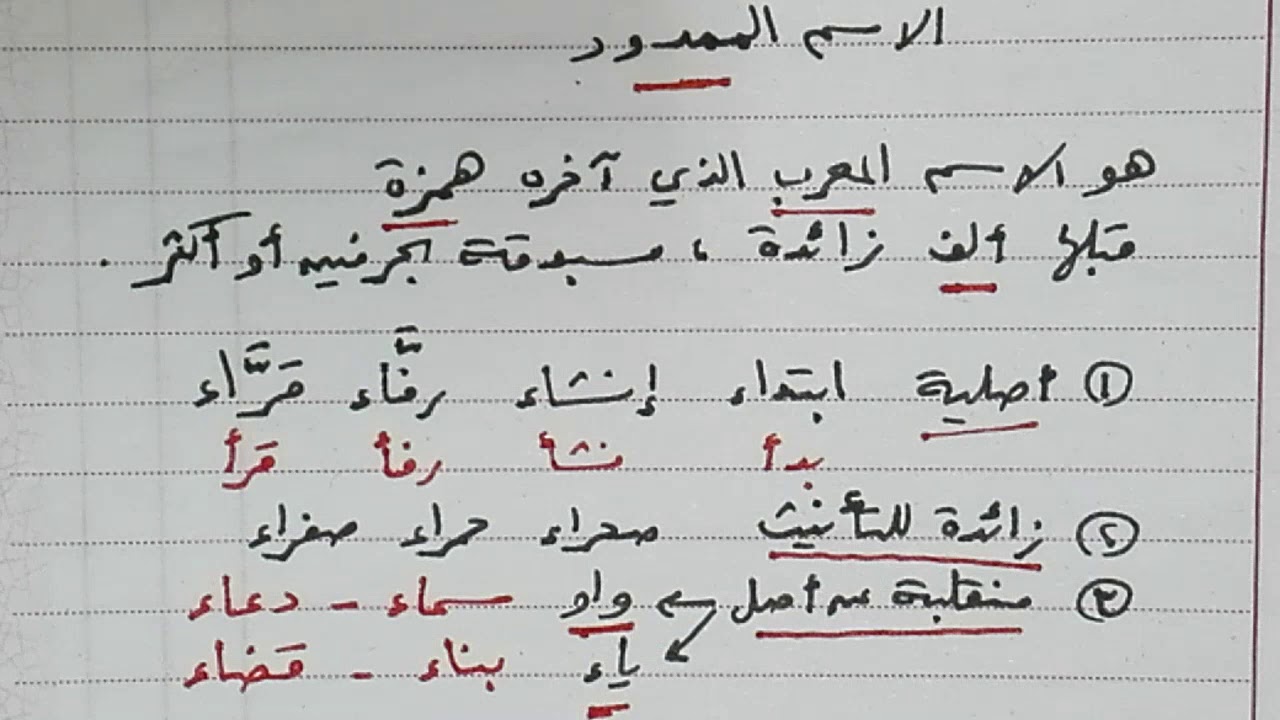 الاسم الممدود
هو الاسم المعرب الذي آخره همزة
قبلها ألف زائدة ، مسبوقة بحرفين أو أكثر .
① أصلية ابتداء إنشاء رفَّاء قرَّاء
بدأ نشأ رفأ قرأ
② زائدة للتأنيث صحراء حمراء صفراء
③ منقلبة عن أصل واو سماء - دعاء
ياء بناء - قضاء